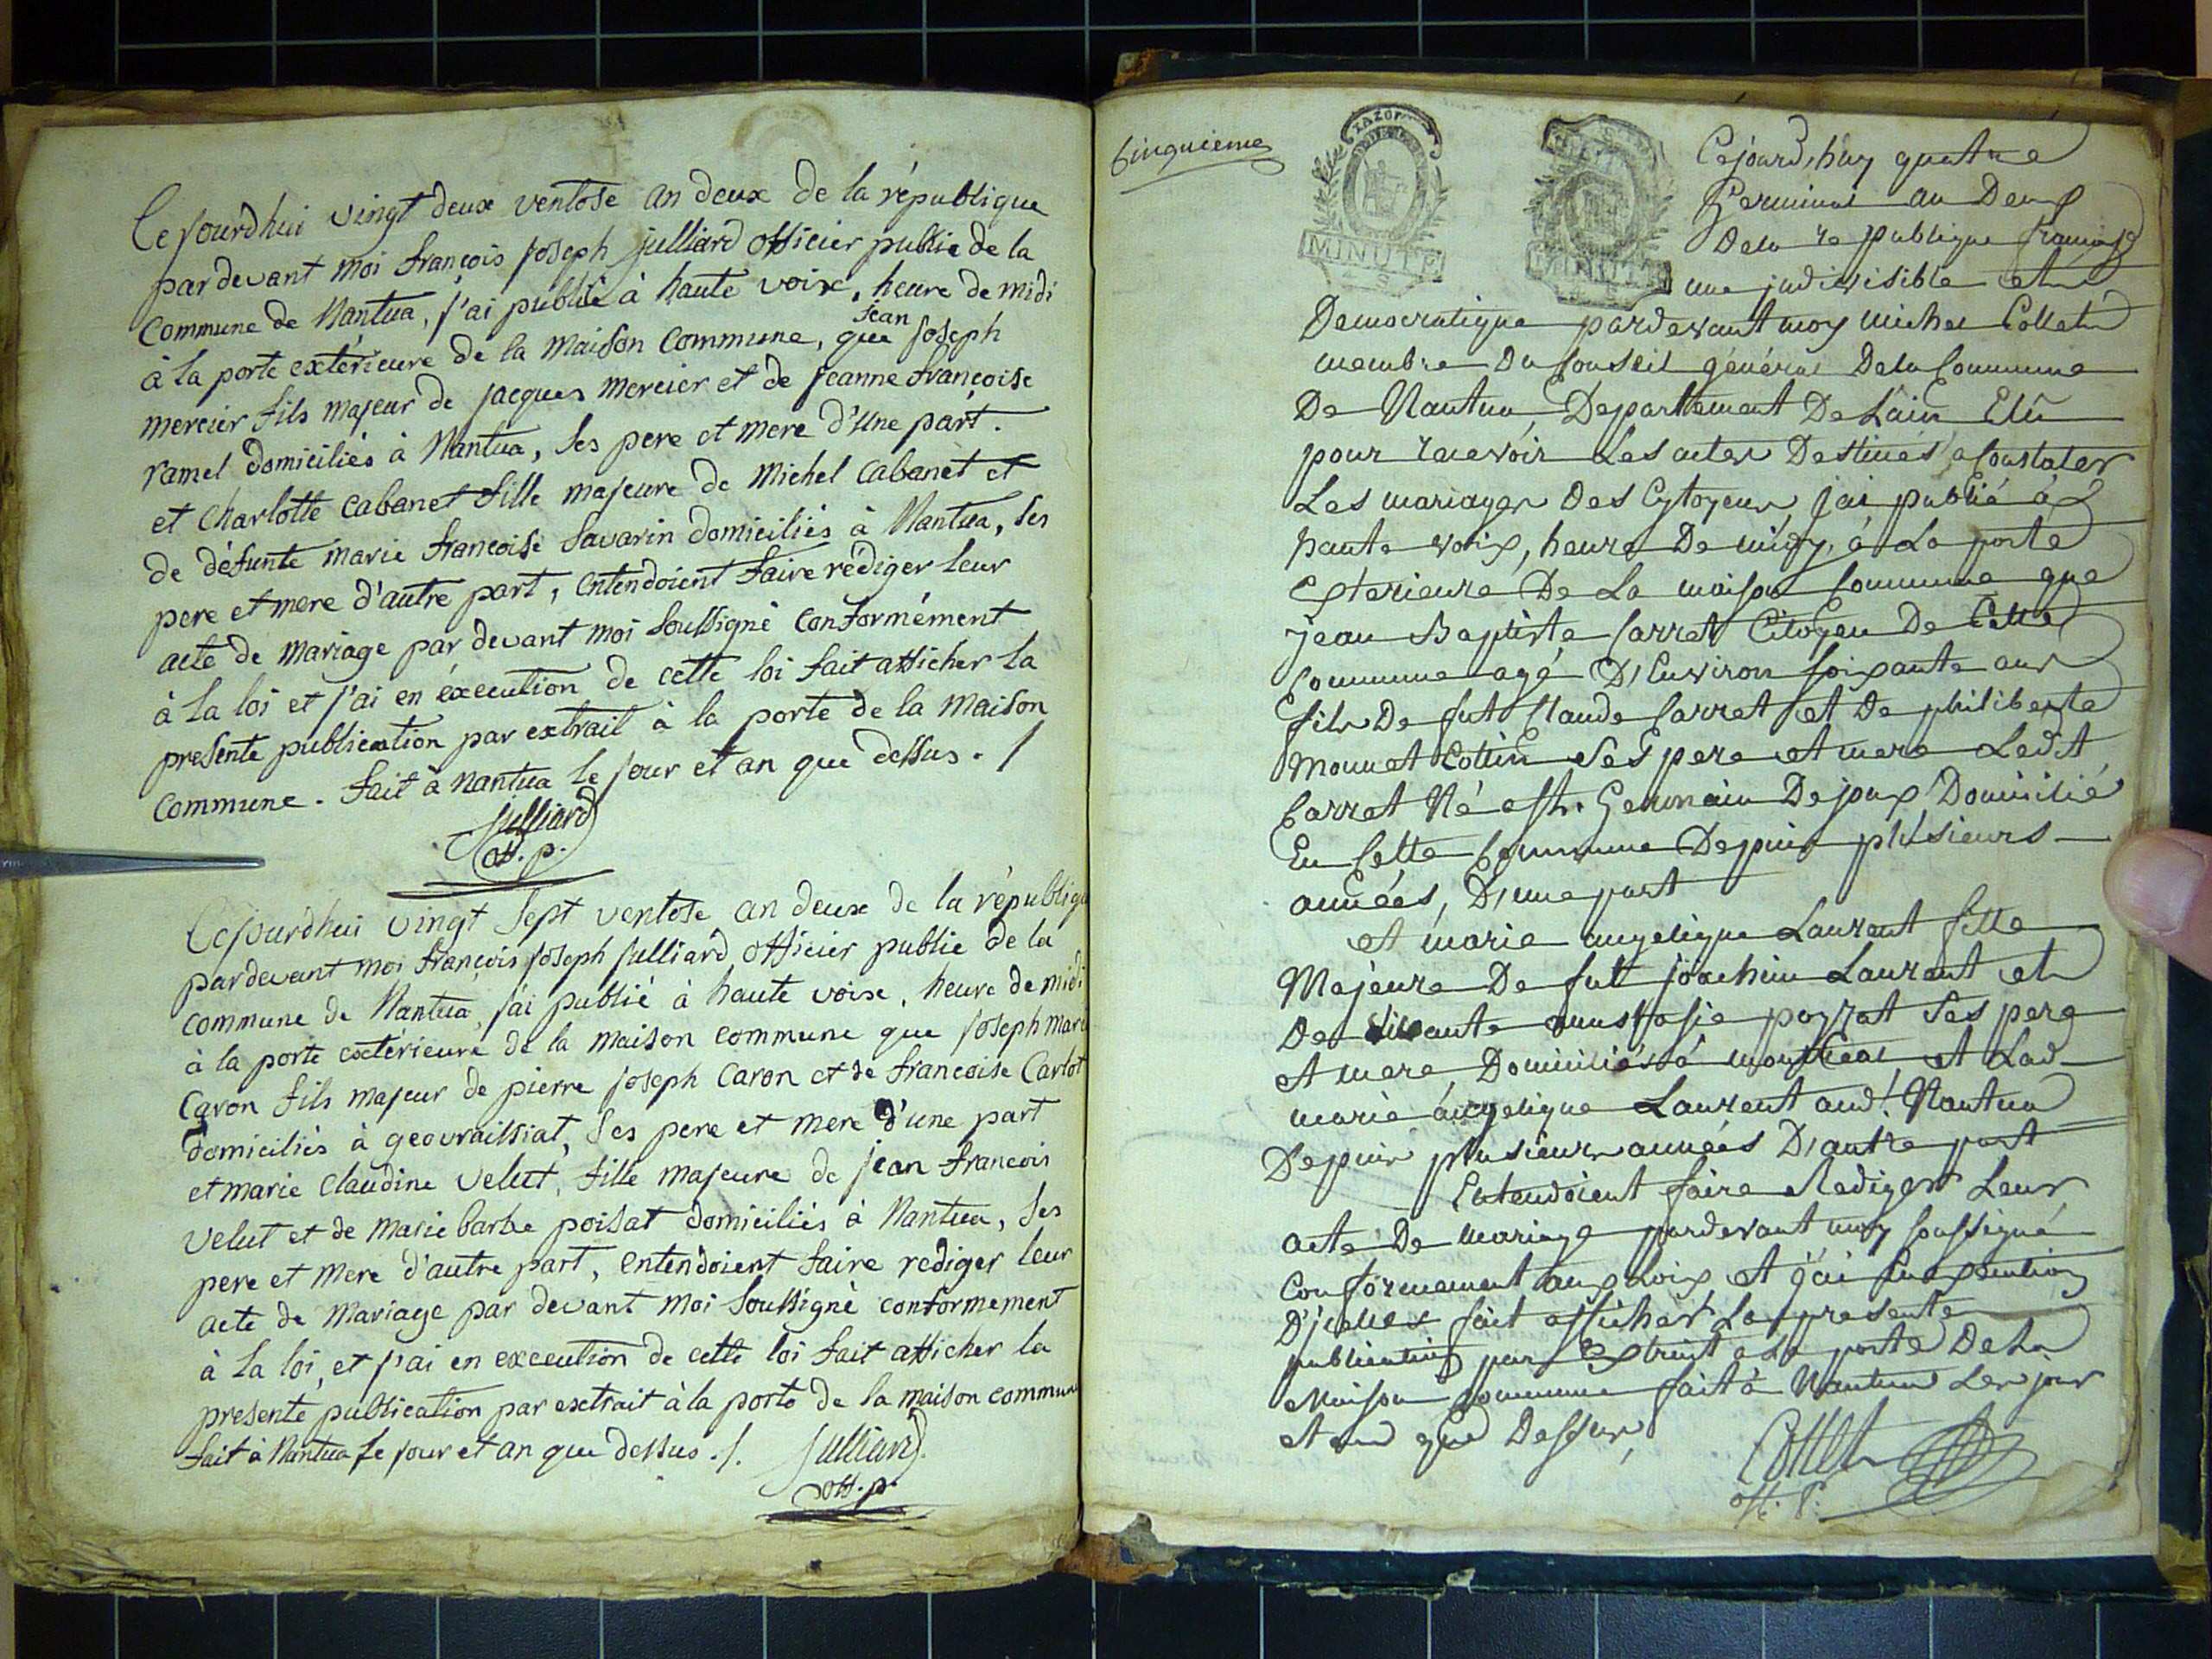 Cejourdhui vingt deux ventose an deux de la république
pardevant moi françois joseph julliard officier public de la
commune de Nantua, j'ai publié à haute voix, heure de midi
à la porte extérieure de la maison commune, que jean joseph
mercier fils majeur de jacques mercier et de jeanne françoise
ramel domiciliés à Nantua, ses pere et mere d'une part.
et charlotte cabanet fille majeure de michel cabanet et
de défunte marie françoise Savarin domiciliés à Nantua, ses
pere et mere d'autre part, entendoient faire rédiger leur
acte de mariage par devant moi soussigné conformément
à la loi et j'ai en éxecution de cette loi fait afficher la
presente publication par extrait à la porte de la maison
commune. fait à nantua le jour et an que dessus. /
julliard
off. p.
Cejourdhui vingt sept ventose an deux de la républiqu
pardevant moi françois joseph julliard officier public de la
commune de Nantua, j'ai publié à haute voix, heure de midi
à la porte extérieure de la maison commune que joseph mari
caron fils majeur de pierre joseph caron et de francoise Carlot
domiciliés à geovraissiat, ses pere et mere d'une part
et marie claudine velut, fille majeure de jean francois
velut et de marie barbe poisat domiciliés à Nantua, ses
pere et mere d'autre part, entendoient faire rediger leur
acte de mariage par devant moi soussigné conformement
à la loi, et j'ai en execution de cette loi fait afficher la
presente publication par extrait à la porte de la maison commun
fait à Nantua le jour et an que dessus ./. julliard
off. p.
Cinquieme
MINUTE
MINUTE
Cejourd'huy quatre
Germinal an Deux
Dela republique française
une indivisible et
Democratique pardevant moy michel Collet
membre Du Conseil général Dela Commune
De Nantua, Departement De L'ain Elû
pour recevoir Les actes Destinés a Constater
Les mariages Des Cytoyens, j'ai publié à
haute voix, heure De midy, à La porte
Exterieure De La maison Commune que
jean Baptiste Carret Citoyen De Cette
Commune agé D'Environ soixante ans
fils De fut Claude Carret et De philiberte
Monnet Collin ses pere et mere Ledit
Carret Né a st. Germain De joux Domicilié
En Cette Commune Depuis plusieurs
années, D'une part
et marie angelique Laurent fille
Majeure De fut joachim Laurent et
De vivante anastasie poyzat ses pere
et mere Domiciliés à montreal, et Lad.
marie angelique Laurent aud. Nantua
Depuis plusieurs années D'autre part
Entendoient faire Rediger Leur
acte De mariage pardevant moy soussigné
Conformement aux Loix, et j'ai En execution
D'icelles fait afficher La presente
publication par Extrait a La porte De La
Maison Commune fait à Nantua Les jour
et an que Dessus,
Collet
off. P.